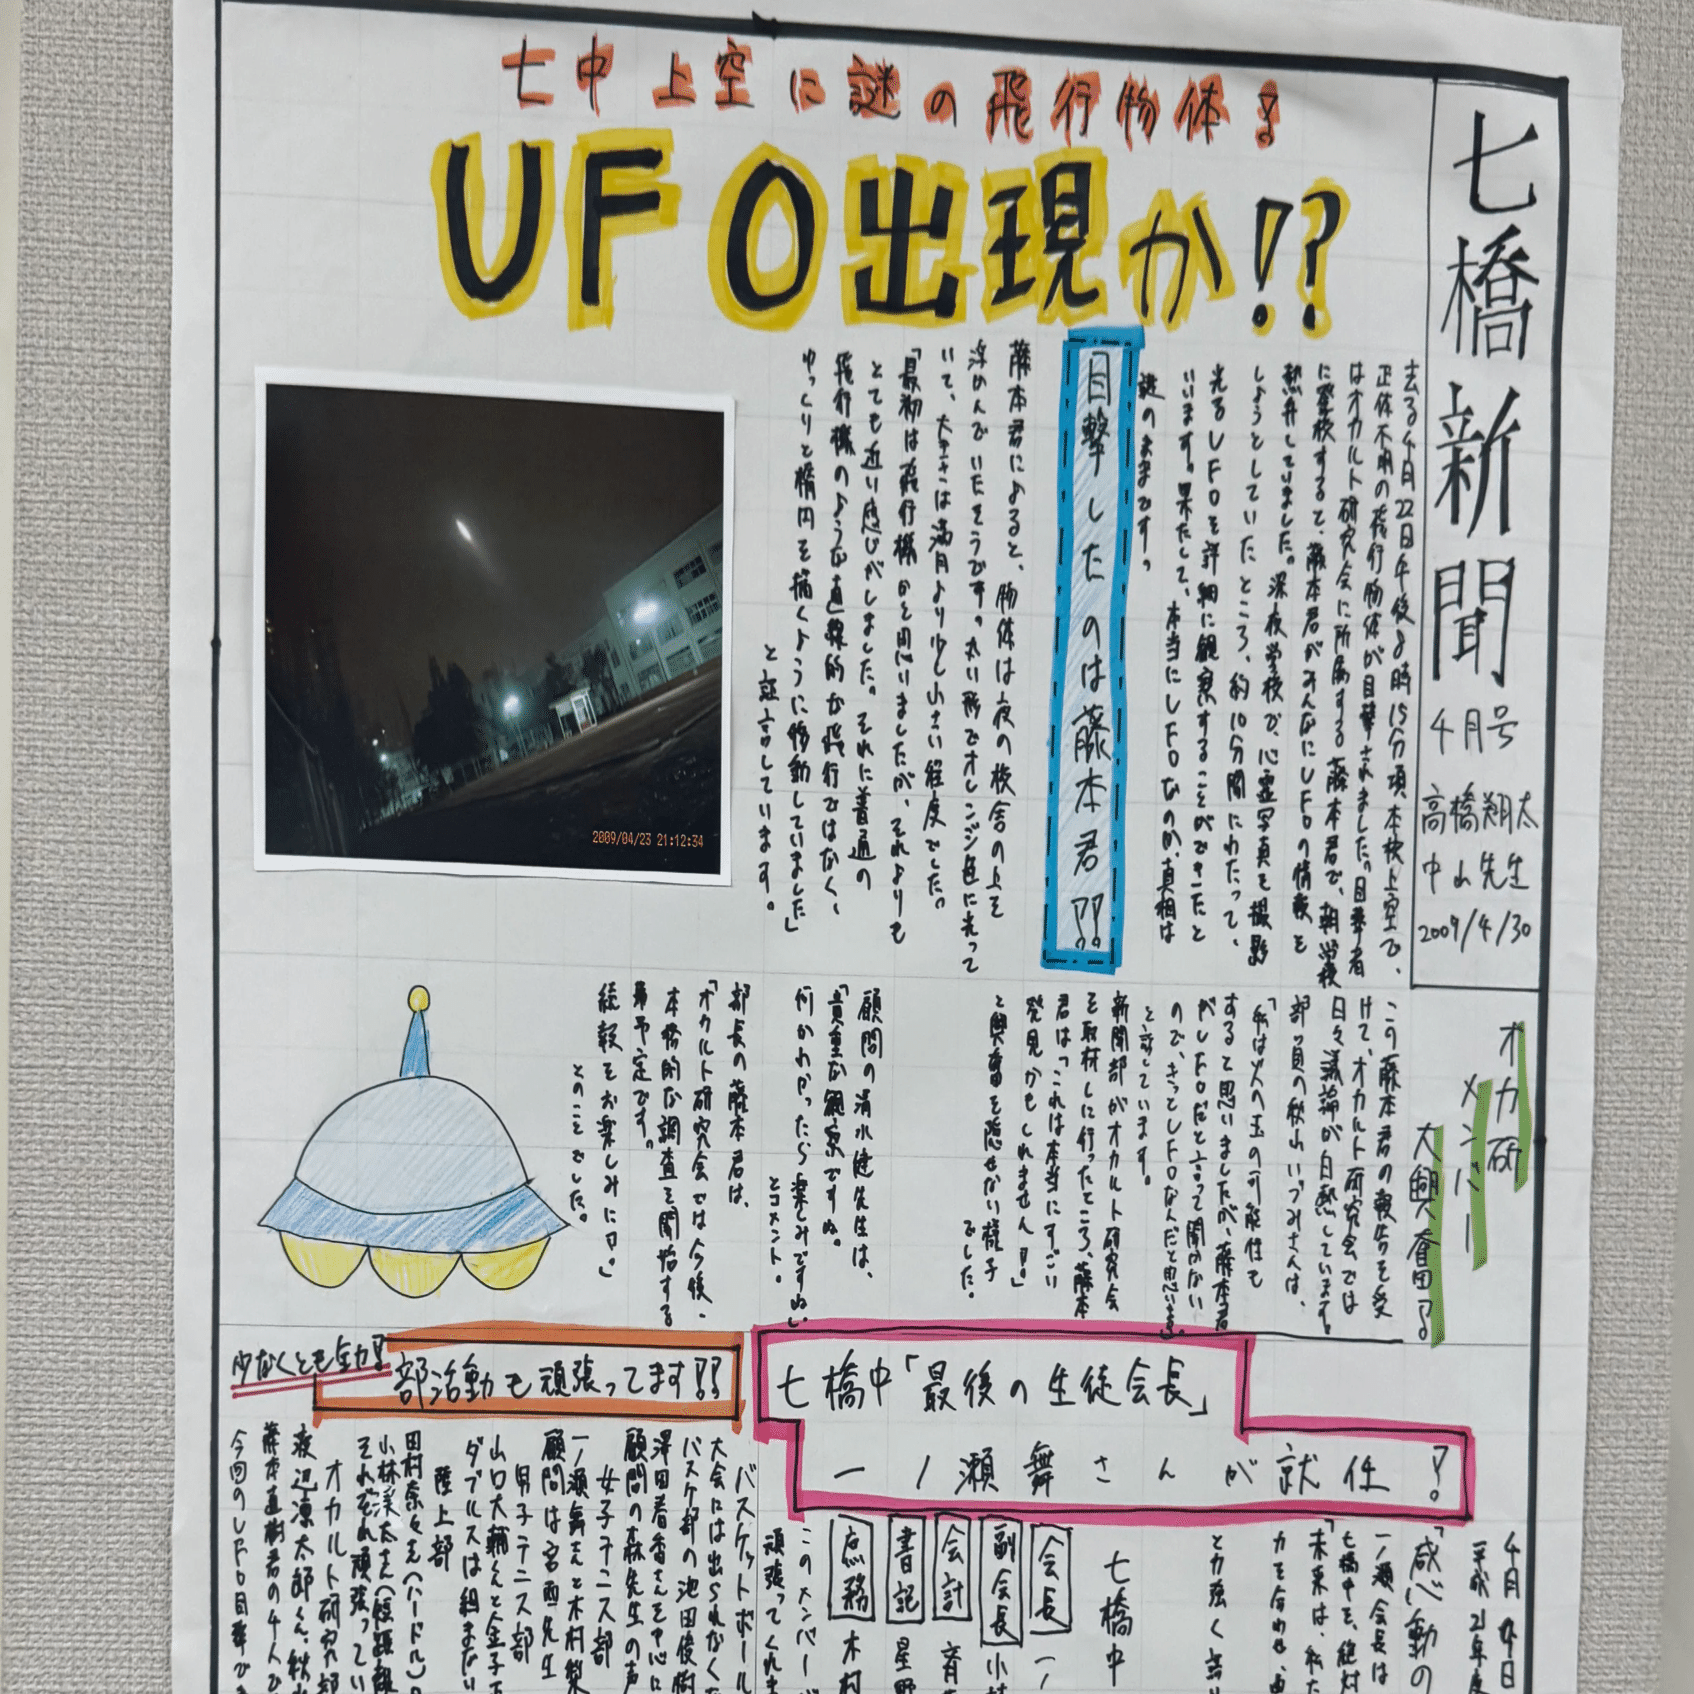 七橋新聞
4月号
高橋翔太
中山先生
2009/4/30
七中上空に謎の飛行物体!
UFO出現か!?
去る4月22日午後8時15分頃、本校上空で、
正体不明の飛行物体が目撃されました。目撃者
はオカルト研究会に所属する藤本君で、朝学校
に登校すると、藤本君がみんなにUFOの情報を
熱弁していました。深夜学校で、心霊写真を撮影
しようとしていたところ、約10分間にわたって、
光るUFOを詳細に観察することができたと
います。果たして、本当にUFOなのか、真相は
謎のままです。
目撃したのは藤本君!!
藤本君によると、物体は夜の校舎の上を
浮かんでいたそうです。丸い形でオレンジ色に光って
いて、大きさは満月より少し小さい程度でした。
「最初は飛行機かと思いましたが、それよりも
とても近い感じがしました。それに普通の
飛行機のような直線的な飛行ではなく、
ゆっくりと楕円を描くように物動していました」
と証言しています。
2009/04/23 21:12:34
オカ研
メンバー
大興奮!
この藤本君の報告を受
けて、オカルト研究会では
日々議論が白熱しています。
部員の秋山いづみさんは、
「私は火の玉の可能性も
すると思いましたが、藤本君
がUFOだと言って聞かない
ので、きっとUFOなんだと思います」
と話しています。
新聞部がオカルト研究会
を取材しに行ったところ、藤本
君は「これは本当にすごい
発見かもしれません!」
と興奮を隠せない様子
でした。
顧問の清水健先生は、
「貴重な観察ですね。
何かわかったら楽しみですね」
とコメント。
部長の藤本君は、
「オカルト研究会では今後、
本格的な調査を開始する
予定です。
続報をお楽しみに!」
とのことでした。
七橋中「最後の生徒会長」
一ノ瀬舞さんが就任!
4月
平成21年度
「感動の
一ノ瀬会長は
七橋中を、絶対
「未来は、私た
力を合わせ、
と力強く
七橋中
会長 一ノ
副会長 小林
会計 斉
書記 星野
庶務 木村
このメンバー
頑張ってくれま
少なくとも全力!
部活動も頑張ってます!!
バスケットボール
大会には出られなく
バスケ部の池田俊樹
澤田春香さんを中心に
顧問の森先生の声
女子テニス部
一ノ瀬舞さんと木村梨
顧問は宮西先生
男子テニス部
山口大輔くんと金子
ダブルスは組まない
陸上部
田村奈々さん(ハードル)
小林渓太さん(短距離
それぞれ頑張ってい
オカルト研究部
渡辺凛太郎くん、秋山
藤本直樹君の4人で
今回のUFO目撃で